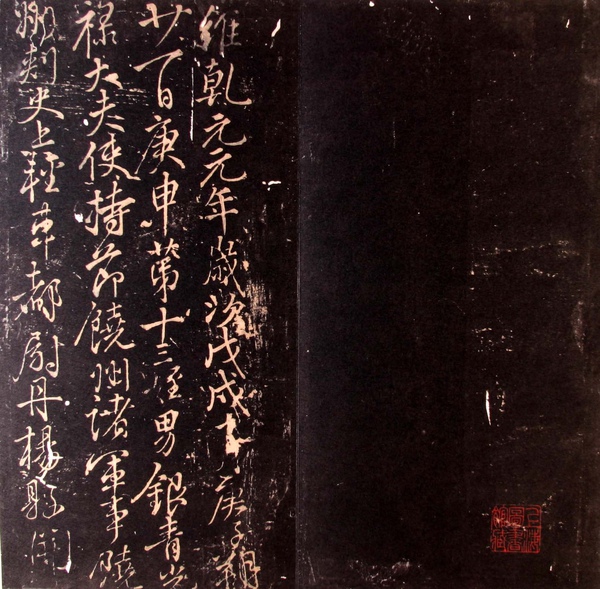 維乾元元年歲次戊戌十月庚子朔
廿一日庚申第十三姪男銀青光
祿大夫使持節饒州諸軍事饒
州刺史上輕車都尉丹楊縣開
上海圖書館藏